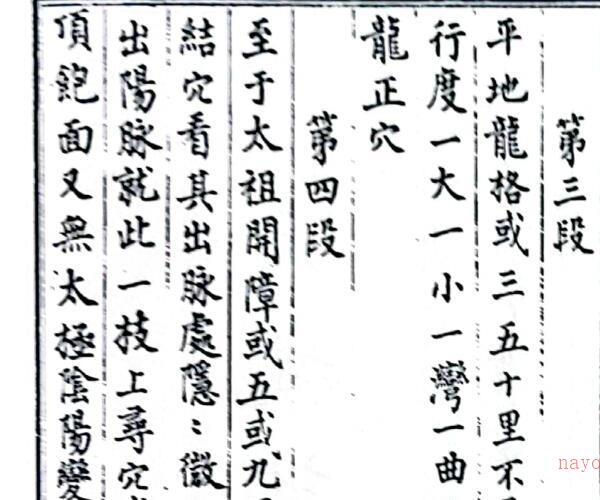 第三段
平地龍格或三五十里不
行度一大一小一灣一曲
龍正穴
第四段
至于太祖開障或五或九
結穴看其出脉處隱〻微
出陽脉就此一技上尋穴
頂飽面又無太極陰陽變
nayo